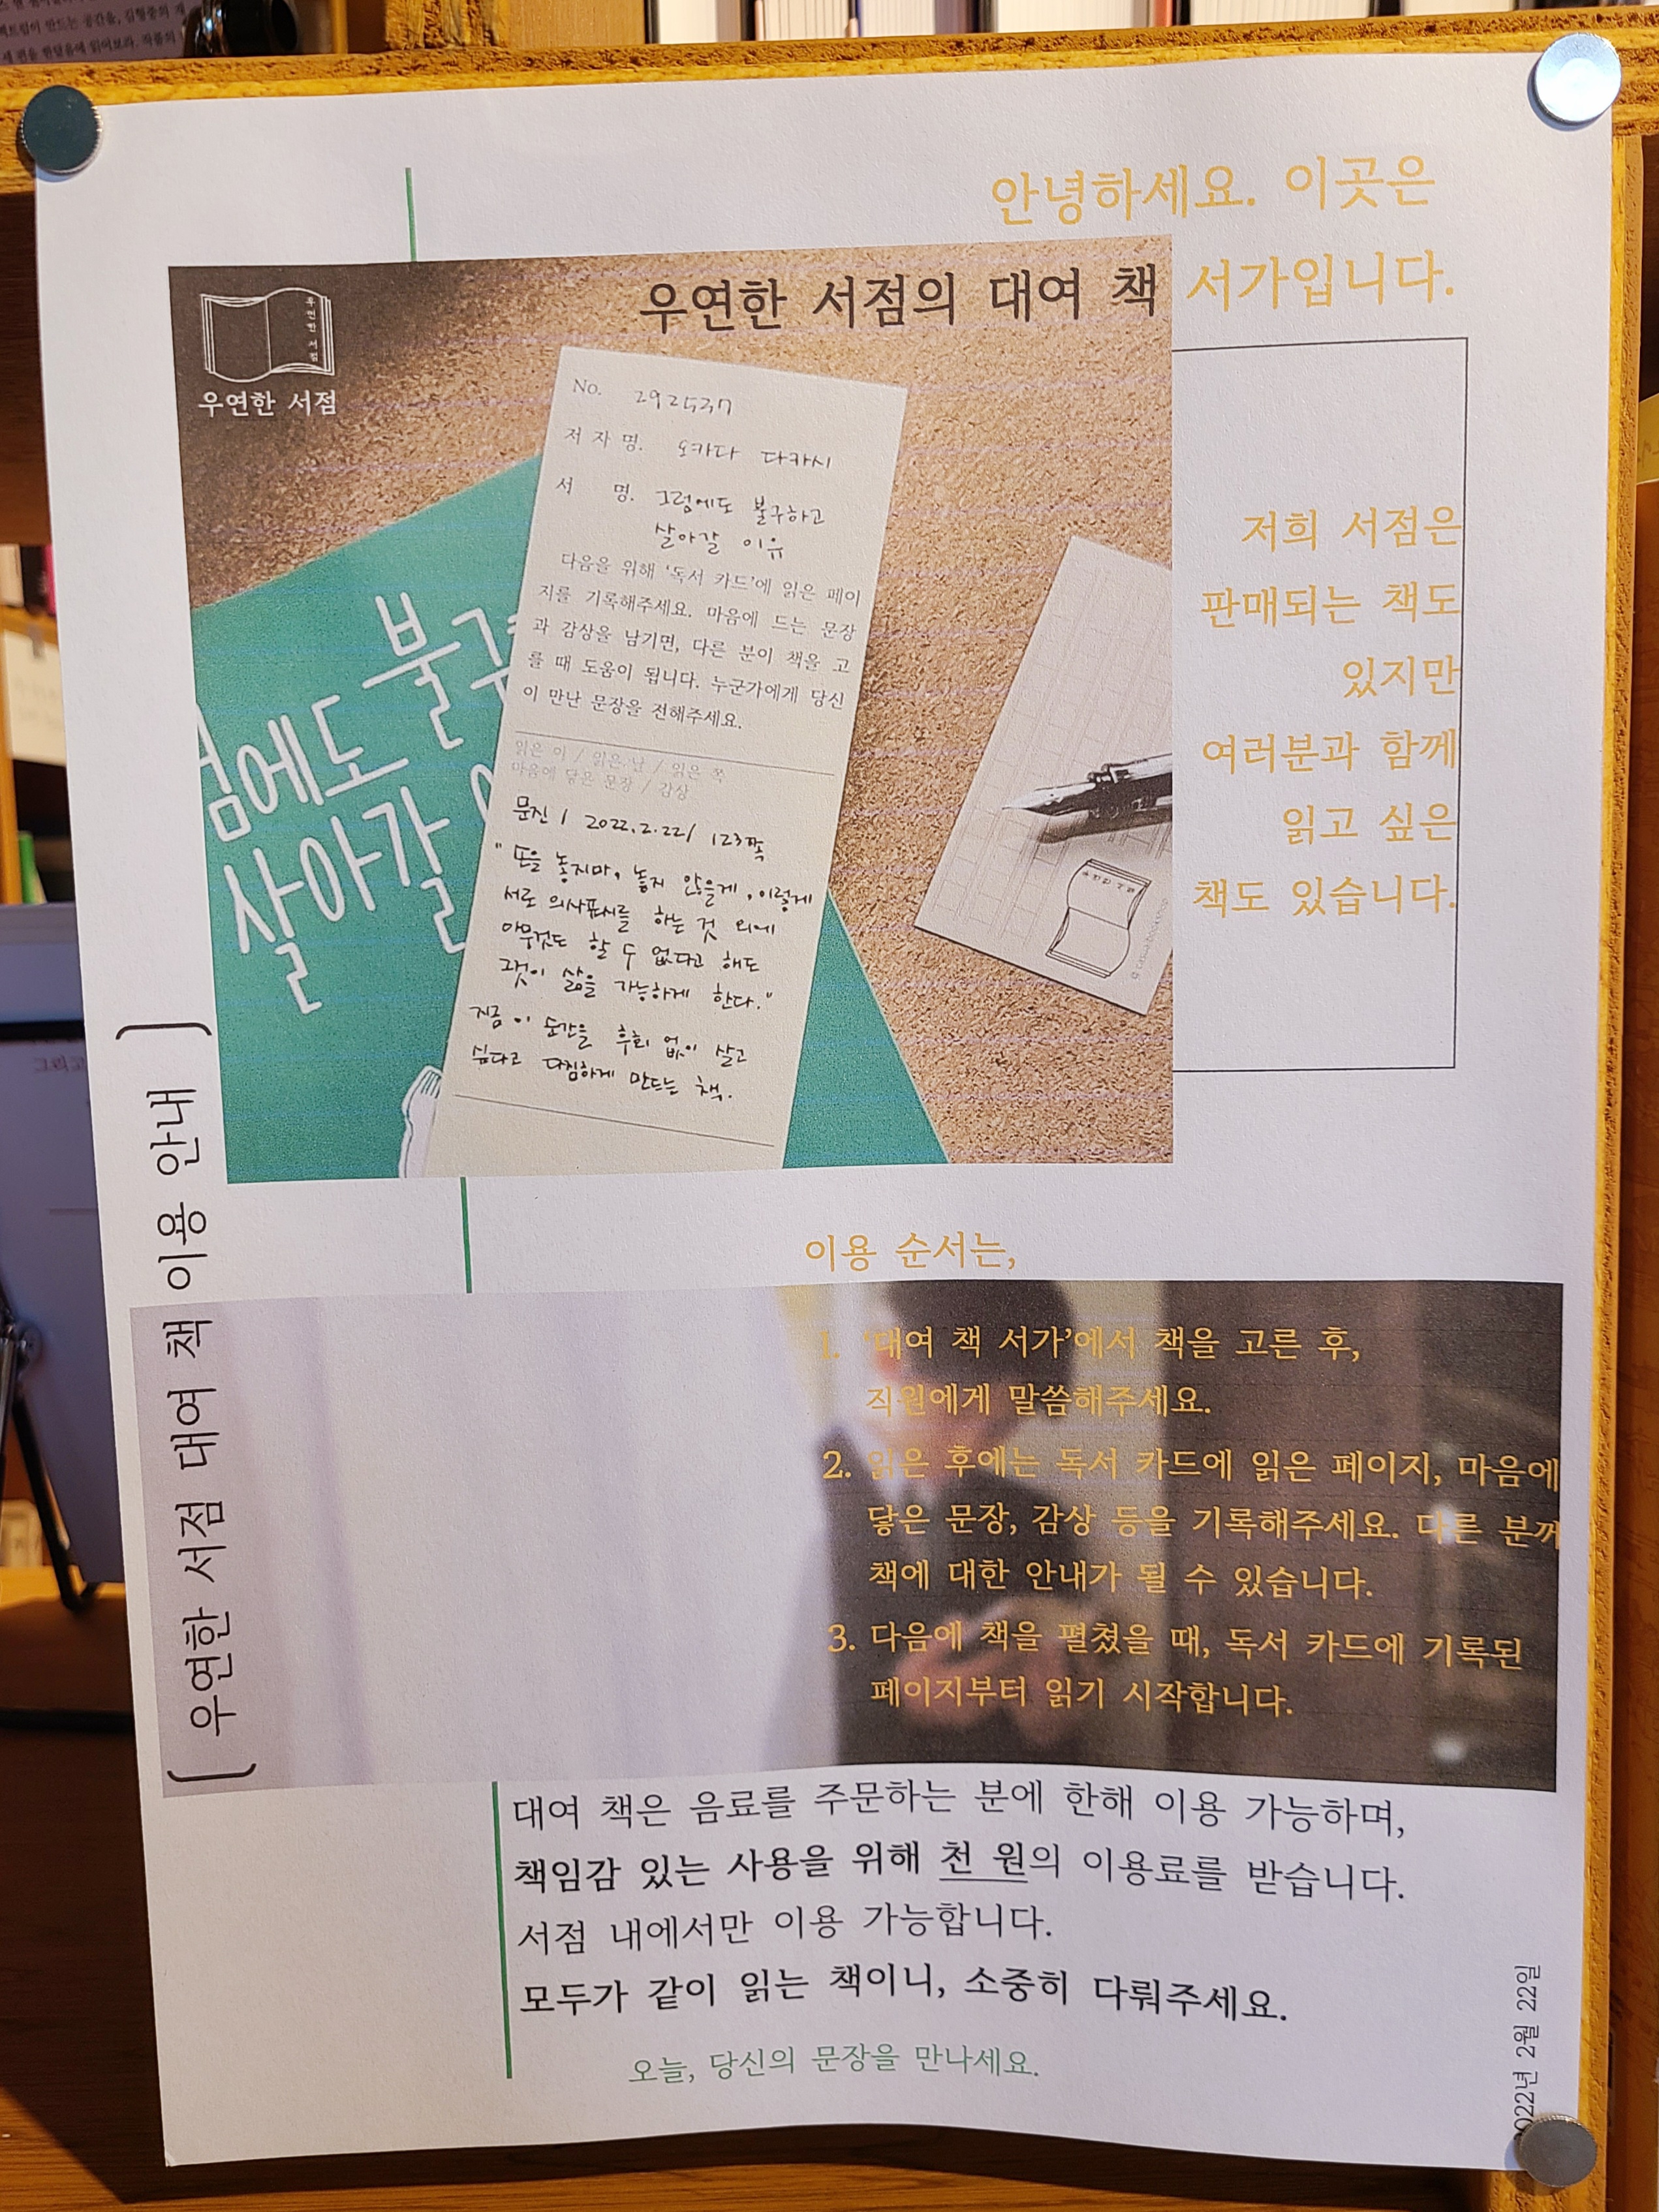 안녕하세요. 이곳은
우연한 서점의 대여 책 서가입니다.
우연한 서점
우연한 서점
No. 292537
저자명. 오카다 다카시
서 명. 그럼에도 불구하고
살아갈 이유
다음을 위해 '독서 카드'에 읽은 페이
지를 기록해주세요. 마음에 드는 문장
과 감상을 남기면, 다른 분이 책을 고
를 때 도움이 됩니다. 누군가에게 당신
이 만난 문장을 전해주세요.
읽은 이 / 읽은 날 / 읽은 쪽
마음에 닿은 문장 / 감상
문진 / 2022.2.22/ 123쪽
"손을 놓지마, 놓지 않을게, 이렇게
서로 의사표시를 하는 것 외에
아무것도 할 수 없다고 해도
그것이 삶을 가능하게 한다."
지금 이 순간을 후회 없이 살고
싶다고 다짐하게 만드는 책.
에도 불구
살아갈
저희 서점은
판매되는 책도
있지만
여러분과 함께
읽고 싶은
책도 있습니다.
[우연한 서점 대여 책 이용 안내]
이용 순서는,
1. '대여 책 서가'에서 책을 고른 후,
직원에게 말씀해주세요.
2. 읽은 후에는 독서 카드에 읽은 페이지, 마음에
닿은 문장, 감상 등을 기록해주세요. 다른 분께
책에 대한 안내가 될 수 있습니다.
3. 다음에 책을 펼쳤을 때, 독서 카드에 기록된
페이지부터 읽기 시작합니다.
대여 책은 음료를 주문하는 분에 한해 이용 가능하며,
책임감 있는 사용을 위해 천 원의 이용료를 받습니다.
서점 내에서만 이용 가능합니다.
모두가 같이 읽는 책이니, 소중히 다뤄주세요.
오늘, 당신의 문장을 만나세요.
2022년 2월 22일